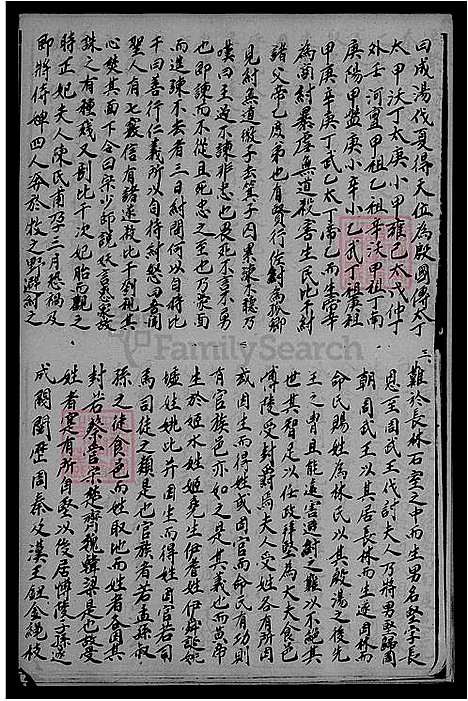 曰成湯伐夏得天位為殷國傳太丁
太甲沃丁太庚小甲雍己太戊仲丁
外壬河亶甲祖乙祖辛沃甲祖丁南
庚陽甲盤庚小辛小乙武丁祖庚祖
甲庚辛庚丁武乙太丁帝乙而生帝辛
為商紂暴虐無道殺害生民比干紂
諸父帝乙庶弟也有賢行信紂為
見紂無道微子去箕子囚累諫不聽乃
嘆曰王過不諫非忠也畏死不言不勇
也即諫而不從且死忠之至也乃造
而進諫不去者三日紂問何以自持比
干曰善行仁義所以自持紂怒曰吾聞
聖人有七竅信有諸遂殺比干剖視其
心焚其面下令曰
珠之有種殘又剖比干次妃胎而觀之
時正妃夫人陳氏甫孕三月恐禍及
即將侍婢四人奔於牧之野避紂之
三
難於長林石室之中而生男名堅字長
恩至周武王伐討夫人乃將男堅歸周
朝周武王以其居長林而生遂因林而
命氏賜姓為林氏以其殷湯之後先
王之冑且能遠害避紂之難以不絕其
世其智足以任政拜堅為大夫食邑
博陵受封爵焉夫人受姓各有所因
或因生而得姓或因官而命氏有功則
有官族邑亦如之是其義也而黃帝
生於姬水姓姬堯生伊耆姓伊舜誕姚
墟姓姚此并因生而得姓因官若司
馬司徒之類是也官族者若孟孫叔
孫之徒食邑而姓取地而姓者各因其
封若蔡管宋楚齊魏韓梁是也故受
姓者實有所自堅以後居博陵子孫遂
成閥閱歷周秦及漢玉鈕金繩枝
FamilySearch